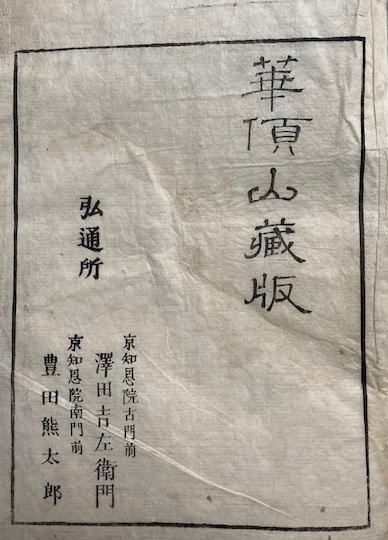 華頂山藏版
弘通所
京知恩院古門前
澤田吉左衛門
京知恩院南門前
豊田熊太郎